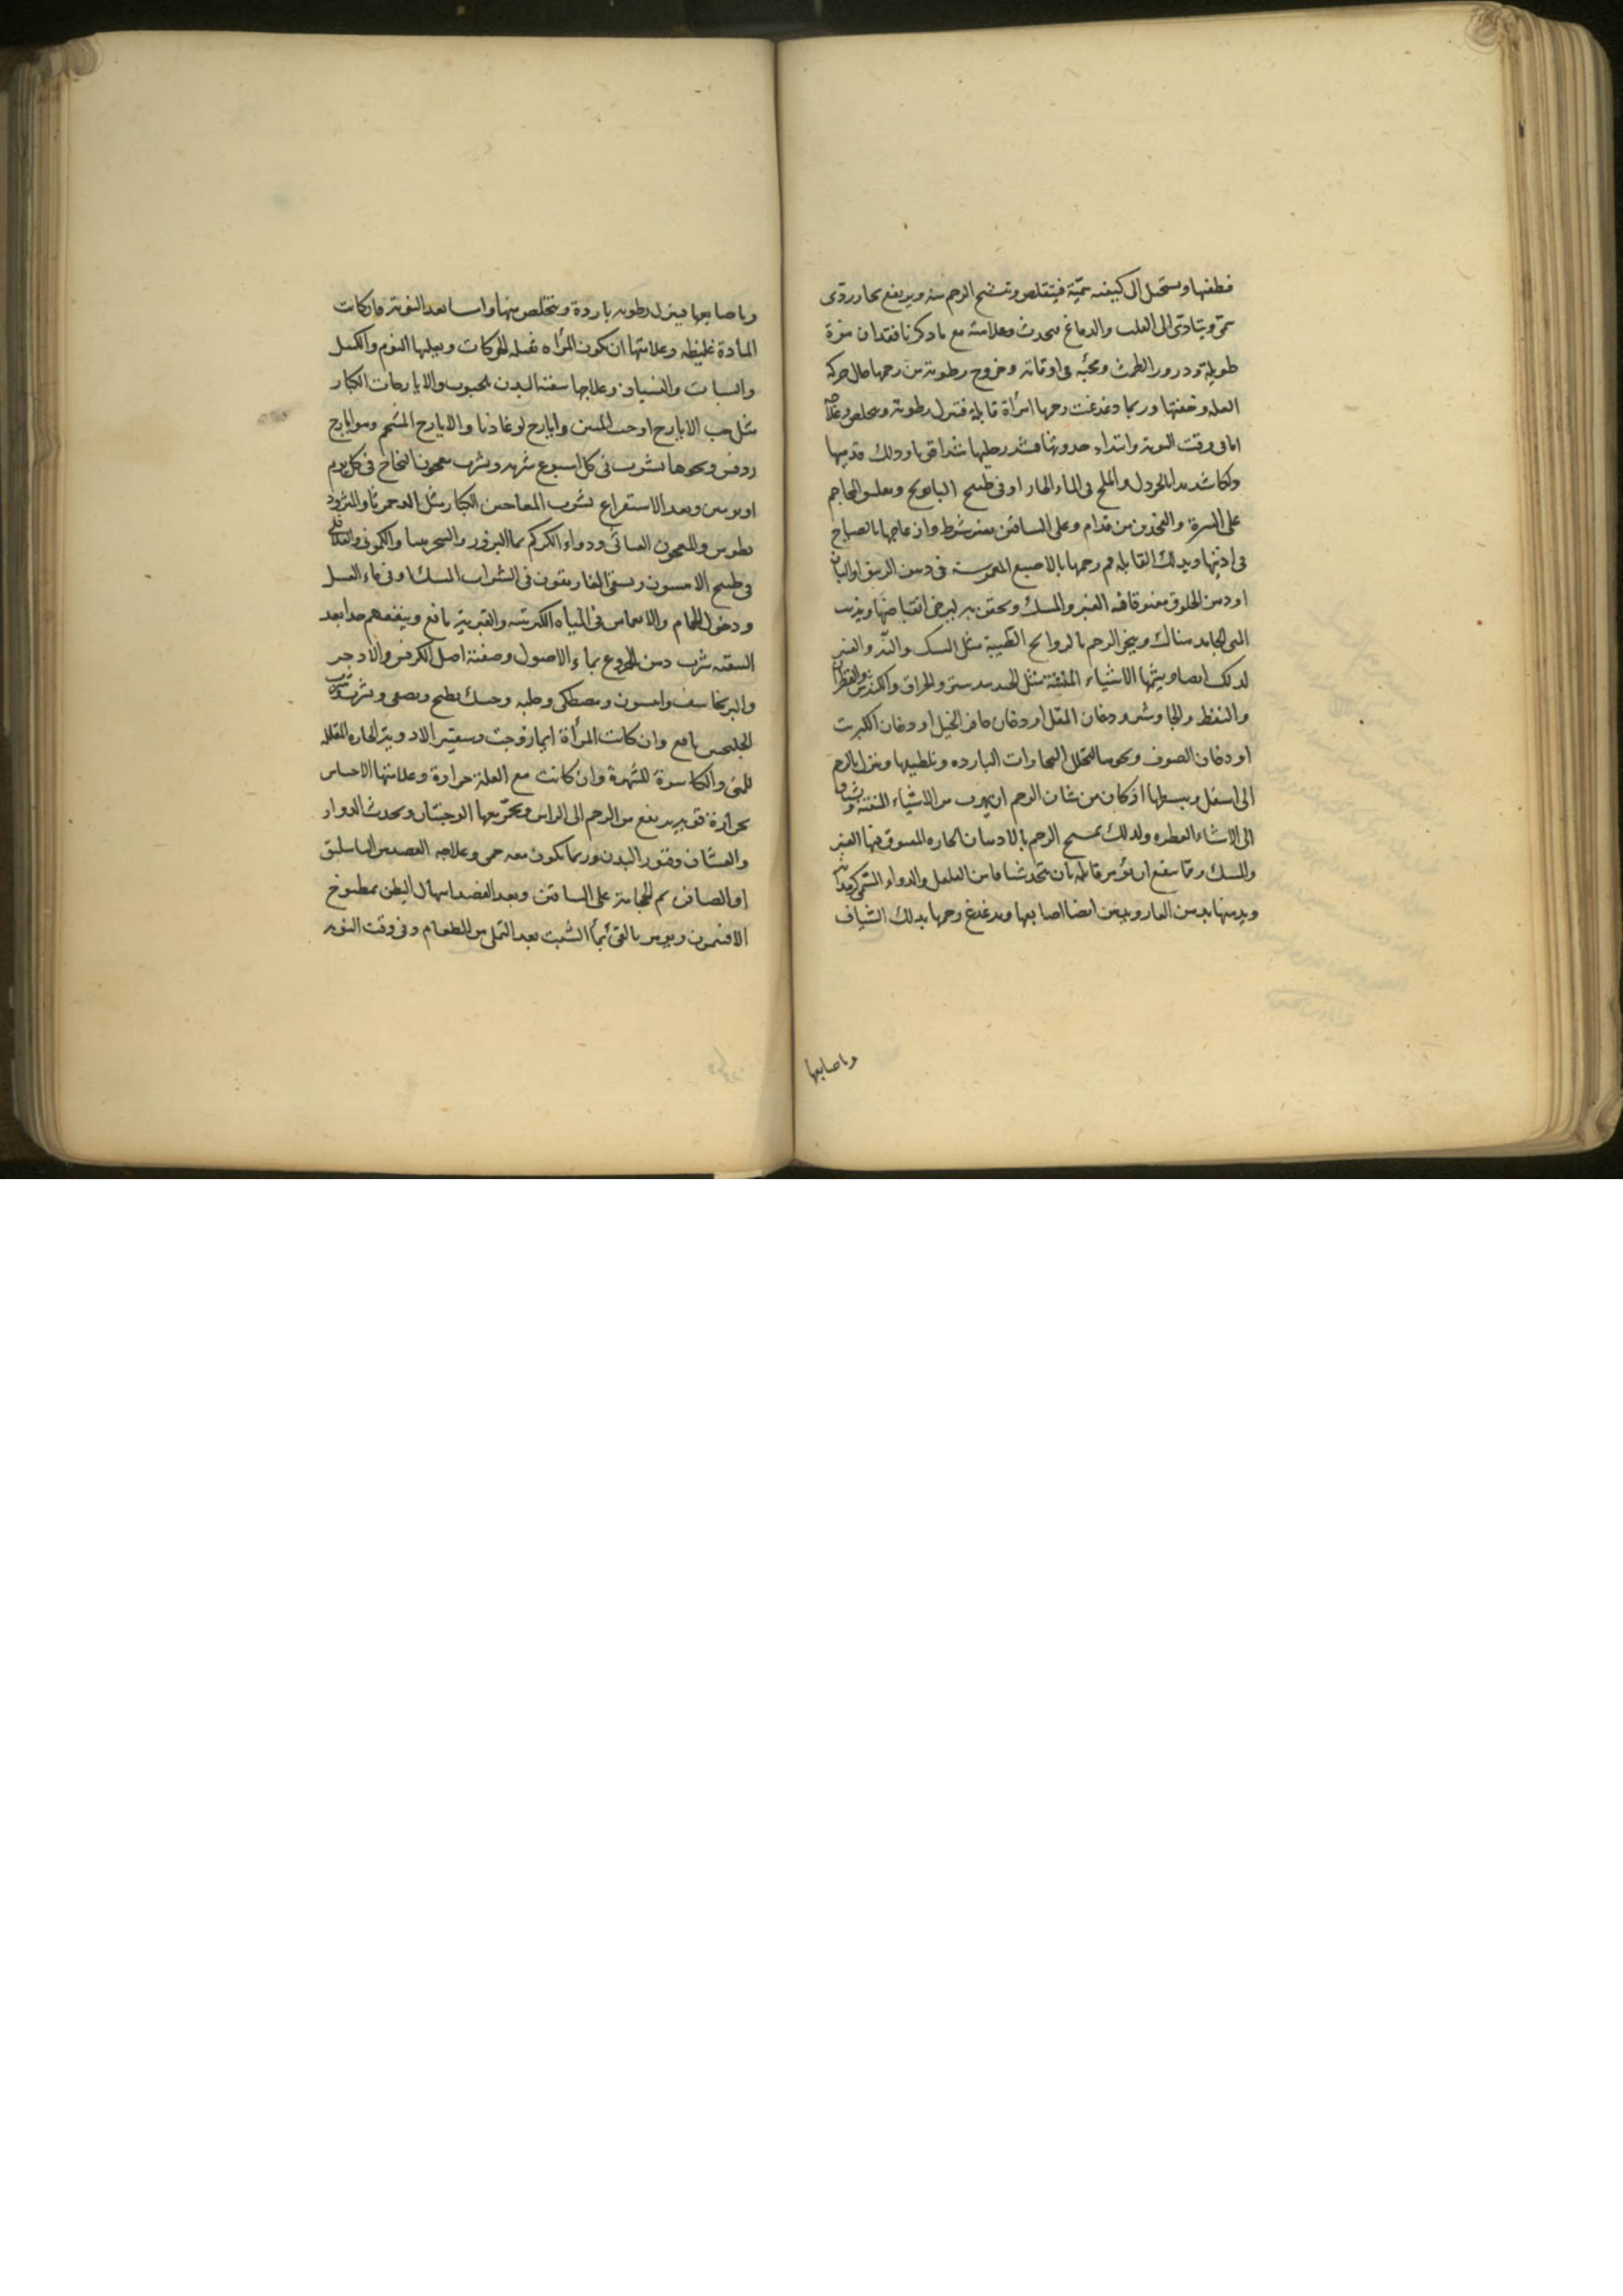 فطفيها ويستحيل الى كيفيه سمية فيتقلص وتشنج الرحم منه ويرتفع بخار ردى
سمى ويتادى الى القلب والدماغ فيحدث وعلامته مع ما ذكرنا فقدان مدة
طويلة ودرور الطمث ومجئه فى اوقاته وخروج رطوبة من رحمها حال حركة
العله وخفتها وربما دغدغت رحمها امرأة قابلة فتنزل رطوبة ويخلص وعلاجه
اما فى وقت النوبة وابتداء حدوثها فشد رجليها شدا قويا ودلك قدميها
دلكا شديدا بالخردل والملح فى الماء الحار او فى طبيخ البابونج وتعليق المحاجم
على السرة والفخذين من قدام وعلى الساقين بغير شرط وازعاجها بالصياح
فى اذنيها ويدلك القابلة فم رحمها بالاصبع المغموسة فى دهن الزنبق او البان
او دهن الخلوق مفتوقا فيه العنبر والمسك وتحقن به ليرخى انقباضها ويذيب
المنى الجامد هناك ويبخر الرحم بالروائح الطيبة مثل المسك والند والعنبر
لذلك ايضا ويشمها الاشياء المنتنة مثل الجندبيدستر والحراق والكندس والقطران
والنفط والجاوشير ودخان المقل او دخان حافر الخيل او دخان الكبريت
او دخان الصوف ونحوها لتحلل البخارات البارده وتلطيفها ونزل بالرحم
الى اسفل ويبسطها اذ كان من شان الرحم ان يهرب من الاشياء المنتنة ويشتاق
الى الاشياء العطره ولذلك يمسح الرحم بالادهان الحاره المفتوق فيها العنبر
والمسك ومما ينفع ان يؤمر قابلة بان تتخذ شيافا من الفلفل والدواء المسمى كرمدانه
ويدهنها بدهن الغار ويدهن ايضا اصابعها ويدغدغ رحمها بذلك الشياف
وباصابعها
وباصابعها فينزل رطوبه باردة ويتخلص منها واما بعد النوبة فان كانت
المادة غليظه وعلامتها ان تكون المرأه ثقيله الحركات ويغلبها النوم والكسل
والسبات والنسيان وعلاجها تنقية البدن بالحبوب والايارجات الكبار
مثل حب الايارج او حب المنتن وايارج لوغاذيا والايارج المشحم وهو ايارج
روفس ونحوها تشرب فى كل اسبوع شربه ويشرب معجون النجاح فى كل يوم
او يومين وبعد الاستفراغ تشرب المعاجين الكبار مثل الدحمرثا والمثرود
يطوس والمعجون الغياثى ودواء الكركم بماء البزور والسجرينيا والكمونى والفلافلى
فى طبيخ الانيسون ويسقى الغاريقون فى الشراب الممسك او فى ماء العسل
ودخول الحمام والانغماس فى المياه الكبريتيه والقيريه نافع وينفعهم جدا بعد
التنقيه شرب دهن الخروع بماء الاصول وصفته اصل الكرفس والاذخر
والبرنجاسف وانيسون ومصطكى وحلبه وحسك يطبخ ويصفى ويشرب وشرب
الجلنجبين نافع وان كانت المرأة ايما زوجت وسقيت الادوية الحاره المقلله
للمنى والكاسرة للشهوة وان كانت مع العلة حرارة وعلامتها الاحساس
بحرارة قويه يرتفع من الرحم الى الراس ويحمر معها الوجنتان ويحدث الدوار
والغشيان وفتور البدن وربما يكون معه حمى وعلاجه الفصد من الباسليق
او الصافن ثم الحجامة على الساقين وبعد الفصد اسهال البطن بمطبوخ
الافتيمون ويؤمر بالقئ بماء الشبت بعد التملى من الطعام وفى وقت النوبه